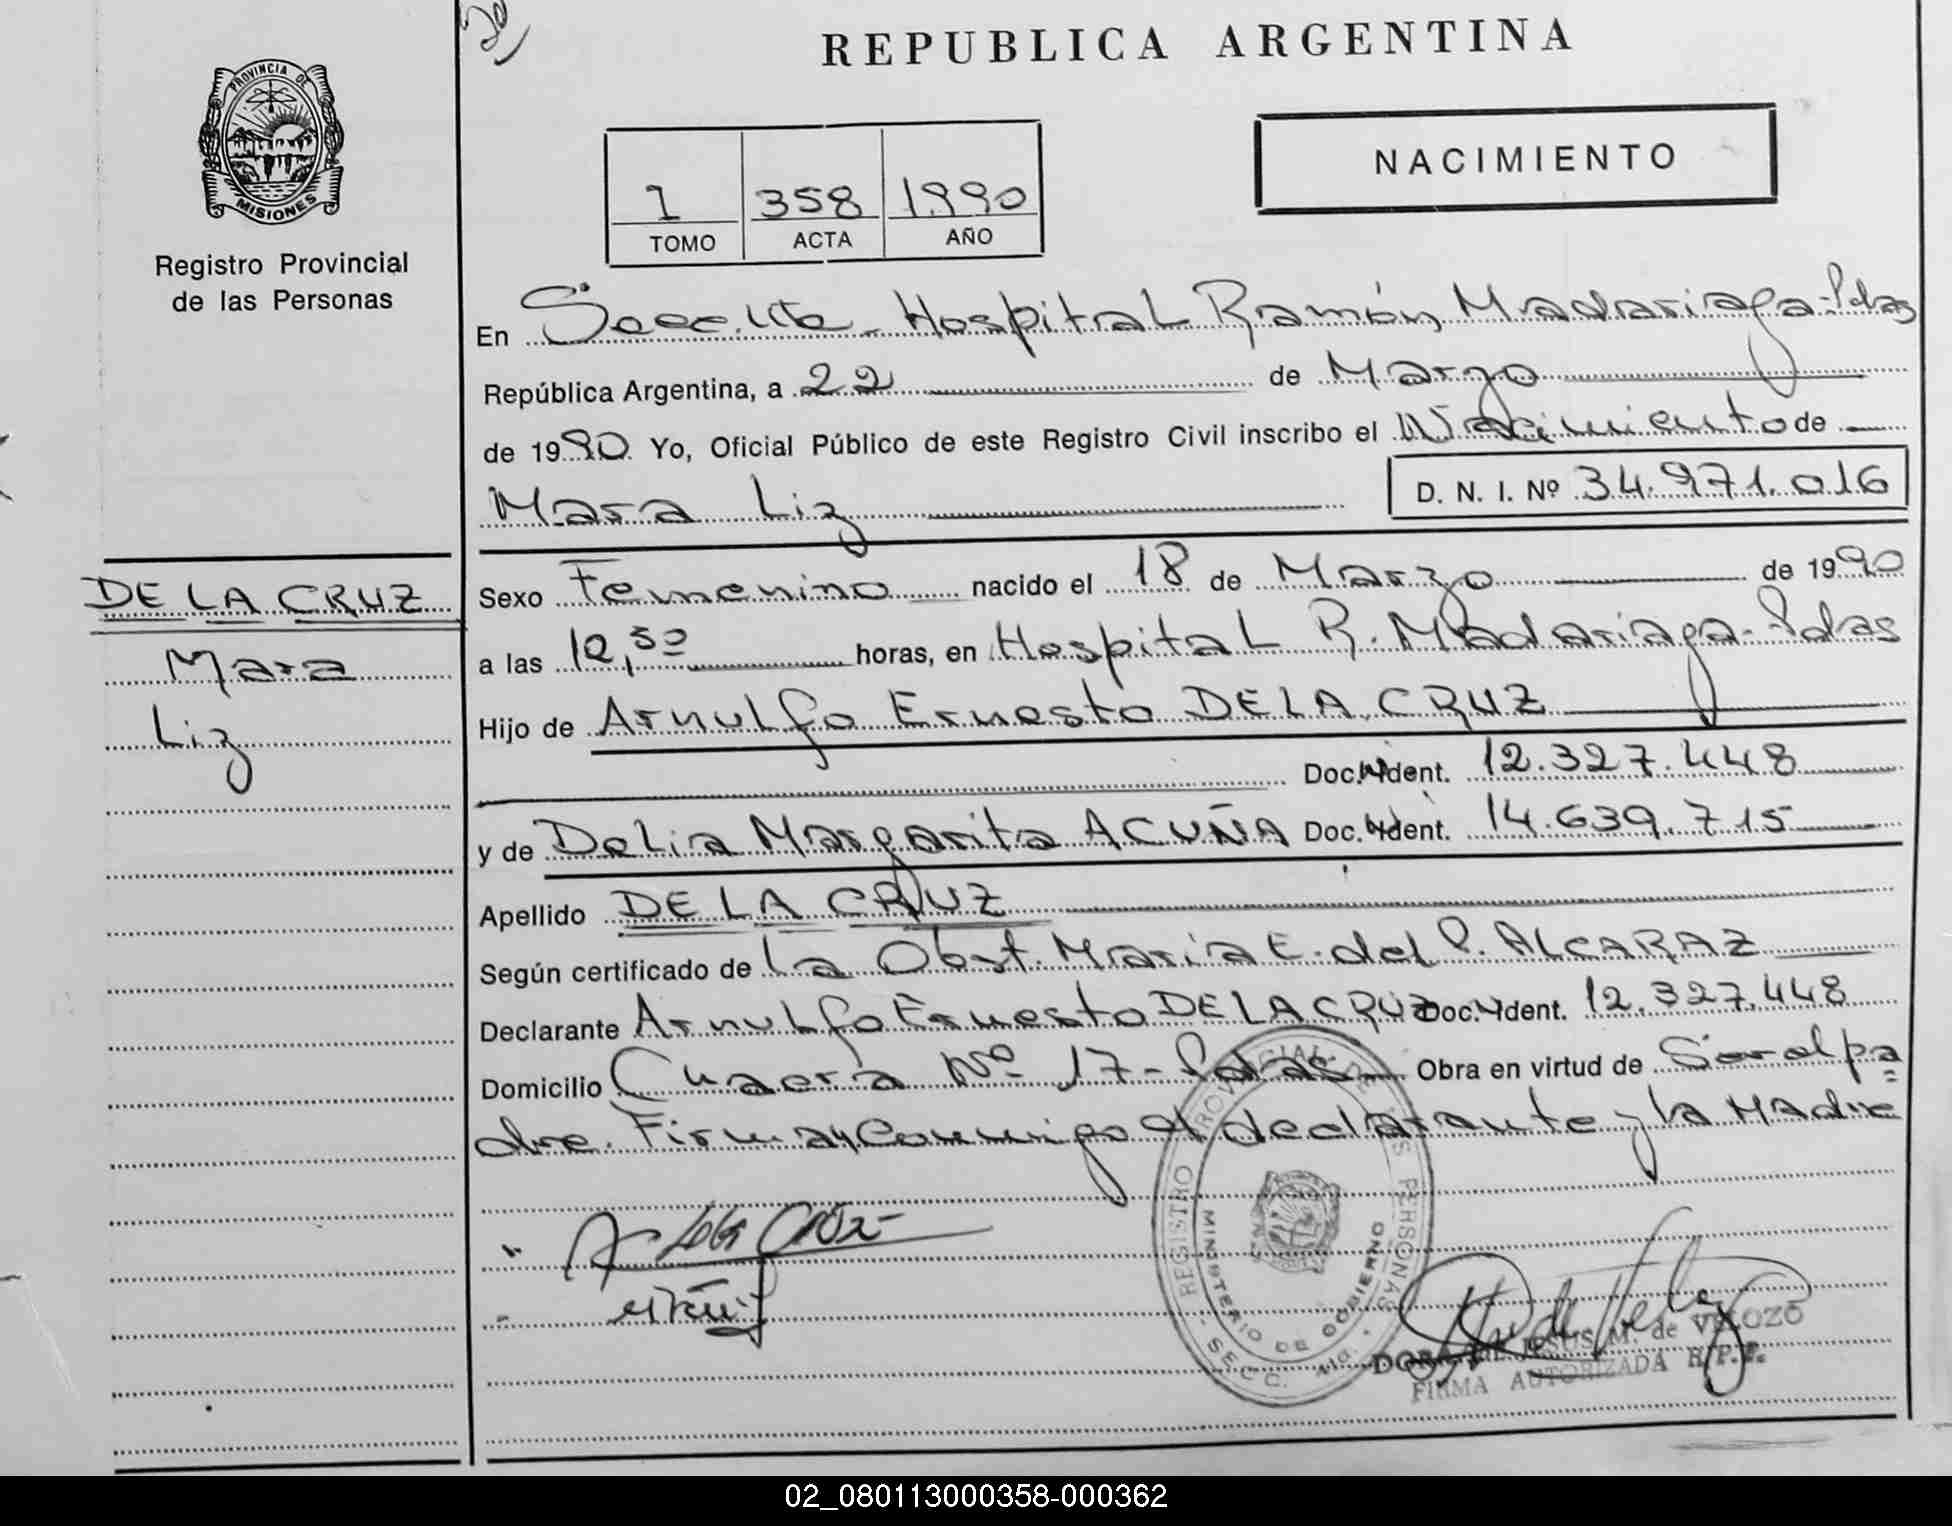 REPUBLICA ARGENTINA
PROVINCIA DE
MISIONES
Registro Provincial
de las Personas
NACIMIENTO
1 358 1990
TOMO ACTA AÑO
En Secc. Hospital Ramón Madariaga-Pdas
República Argentina, a 22 de Marzo
de 1990 Yo, Oficial Público de este Registro Civil inscribo el Nacimiento de
Mara Liz D. N. I. Nº 34.971.016
DE LA CRUZ
Mara
Liz
Sexo Femenino nacido el 18 de Marzo de 1990
a las 12,50 horas, en Hospital R. Madariaga-Pdas
Hijo de Arnulfo Ernesto DE LA CRUZ
Doc. Ident. 12.327.448
y de Delia Margarita ACUÑA Doc. Ident. 14.639.715
Apellido DE LA CRUZ
Según certificado de La Obst. Maria E. del P. ALCARAZ
Declarante Arnulfo Ernesto DE LA CRUZ Doc. Ident. 12.327.448
Domicilio Chacra Nº 17-Pdas Obra en virtud de Ser el pa
dre. Firman conmigo el declarante y la Madre
A de la Cruz
REGISTRO PROVINCIAL DE LAS PERSONAS
MINISTERIO DE GOBIERNO
SECC.
DORA DE JESUS M. de VELOZO
FIRMA AUTORIZADA R.P.P.
02_080113000358-000362